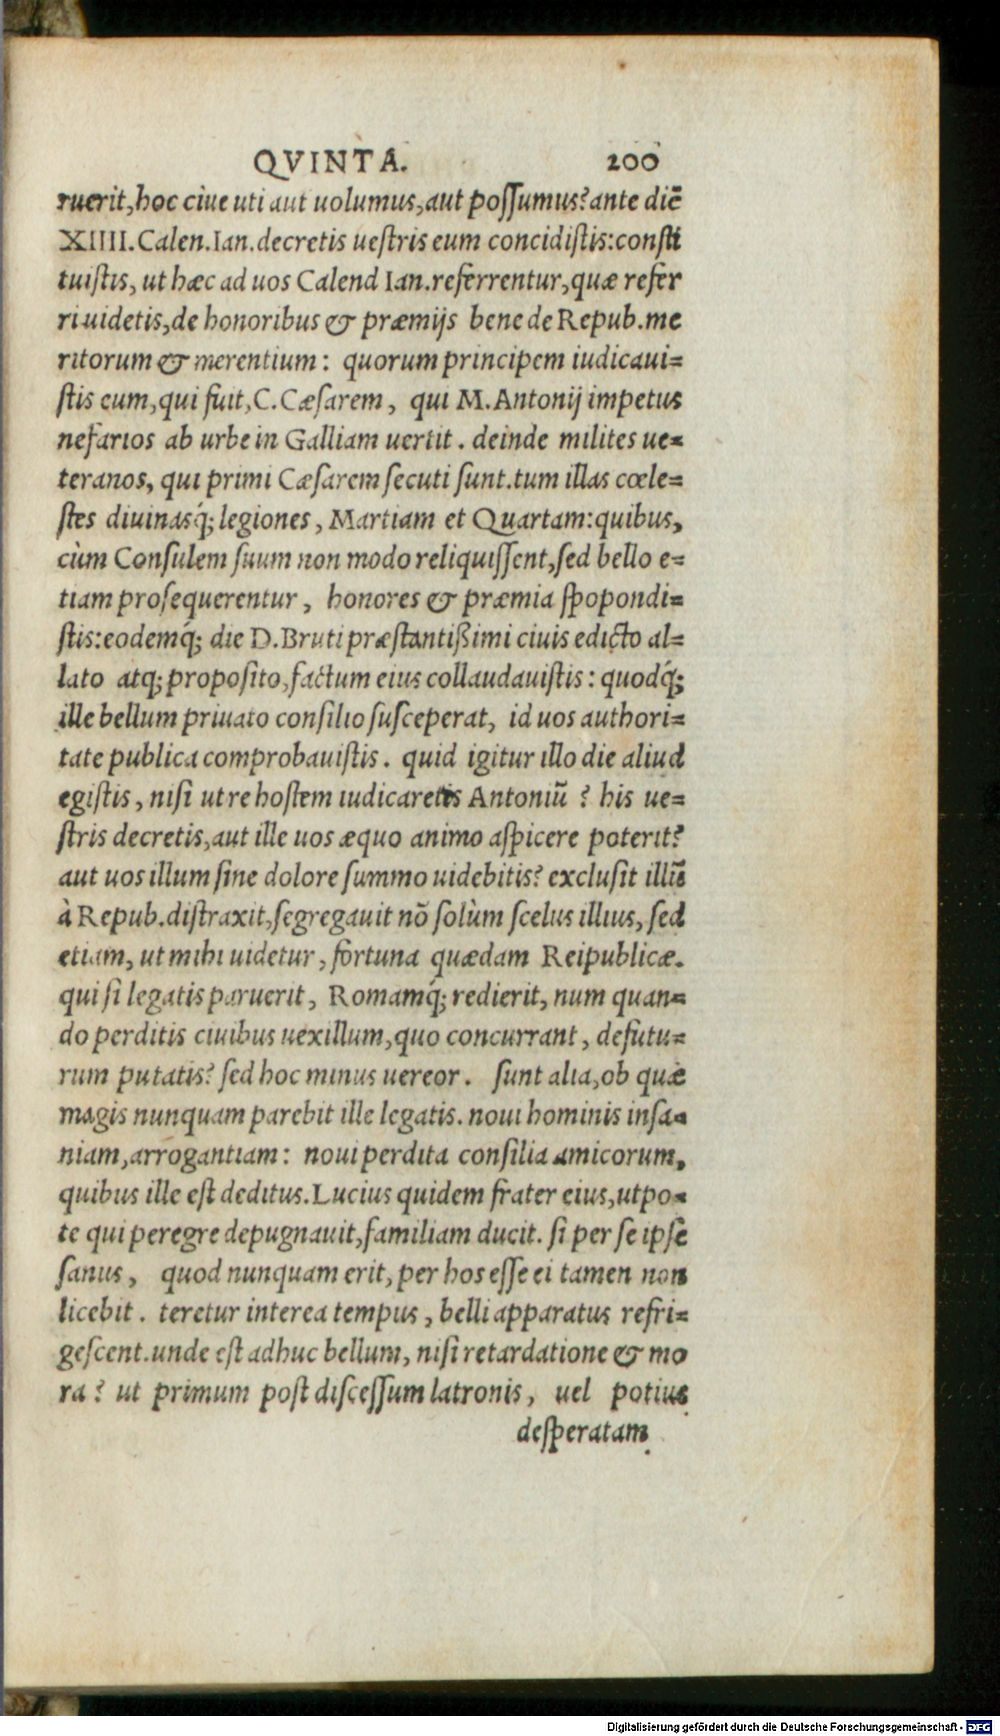 QVINTA. 200
ruerit, hoc ciue uti aut uolumus, aut possumus? ante diē
XIIII. Calen. Ian. decretis uestris eum concidistis: consti
tuistis, ut hæc ad uos Calend Ian. referrentur, quæ refer
ri uidetis, de honoribus & præmijs bene de Repub. me
ritorum & merentium: quorum principem iudicaui=
stis eum, qui fuit, C. Cæsarem, qui M. Antonij impetus
nefarios ab urbe in Galliam uertit. deinde milites ue=
teranos, qui primi Cæsarem secuti sunt. tum illas cœle=
stes diuinasq́; legiones, Martiam et Quartam: quibus,
cùm Consulem suum non modo reliquissent, sed bello e=
tiam prosequerentur, honores & præmia spopondi=
stis: eodemq́; die D. Bruti præstantißimi ciuis edicto al=
lato atq; proposito, factum eius collaudauistis: quodq́;
ille bellum priuato consilio susceperat, id uos authori=
tate publica comprobauistis. quid igitur illo die aliud
egistis, nisi ut re hostem iudicaretis Antoniū? his ue=
stris decretis, aut ille uos æquo animo aspicere poterit?
aut uos illum sine dolore summo uidebitis? exclusit illū
à Repub. distraxit, segregauit nō solùm scelus illius, sed
etiam, ut mihi uidetur, fortuna quædam Reipublicæ.
qui si legatis paruerit, Romamq́; redierit, num quan=
do perditis ciuibus uexillum, quo concurrant, defutu=
rum putatis? sed hoc minus uereor. sunt alia, ob quæ
magis nunquam parebit ille legatis. noui hominis insa=
niam, arrogantiam: noui perdita consilia amicorum,
quibus ille est deditus. Lucius quidem frater eius, utpo=
te qui peregre depugnauit, familiam ducit. si per se ipse
sanus, quod nunquam erit, per hos esse ei tamen non
licebit. teretur interea tempus, belli apparatus refri=
gescent. unde est adhuc bellum, nisi retardatione & mo
ra? ut primum post discessum latronis, uel potius
desperatam
Digitalisierung gefördert durch die Deutsche Forschungsgemeinschaft - DFG